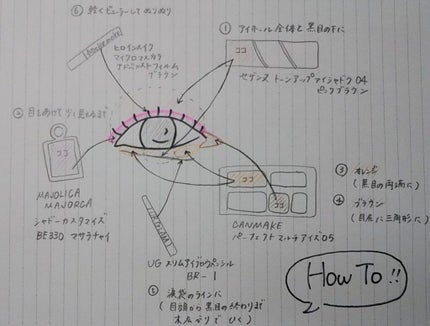 ⑥ 軽くビューラーしてぬりぬり
ヒロインメイク
マイクロマスカラ
アドバンストフィルム
ブラウン
① アイホール全体と黒目の下に
ココ
セザンヌ トーンアップアイシャドウ 04
ピックブラウン
② 目をあけて少し見えるまで
ココ
MAJOLICA
MAJORCA
シャドーカスタマイズ
BE330 マサラチャイ
ココ
ココ
CANMAKE
パーフェクトマルチアイズ05
③ オレンジ
(黒目の両端に)
④ ブラウン
(目尻に三角形に)
UG スリムアイブロウペンシル
BR-1
⑤ 涙袋のラインに
(目頭から黒目の終わりまで
末広がりでひく)
How To!!